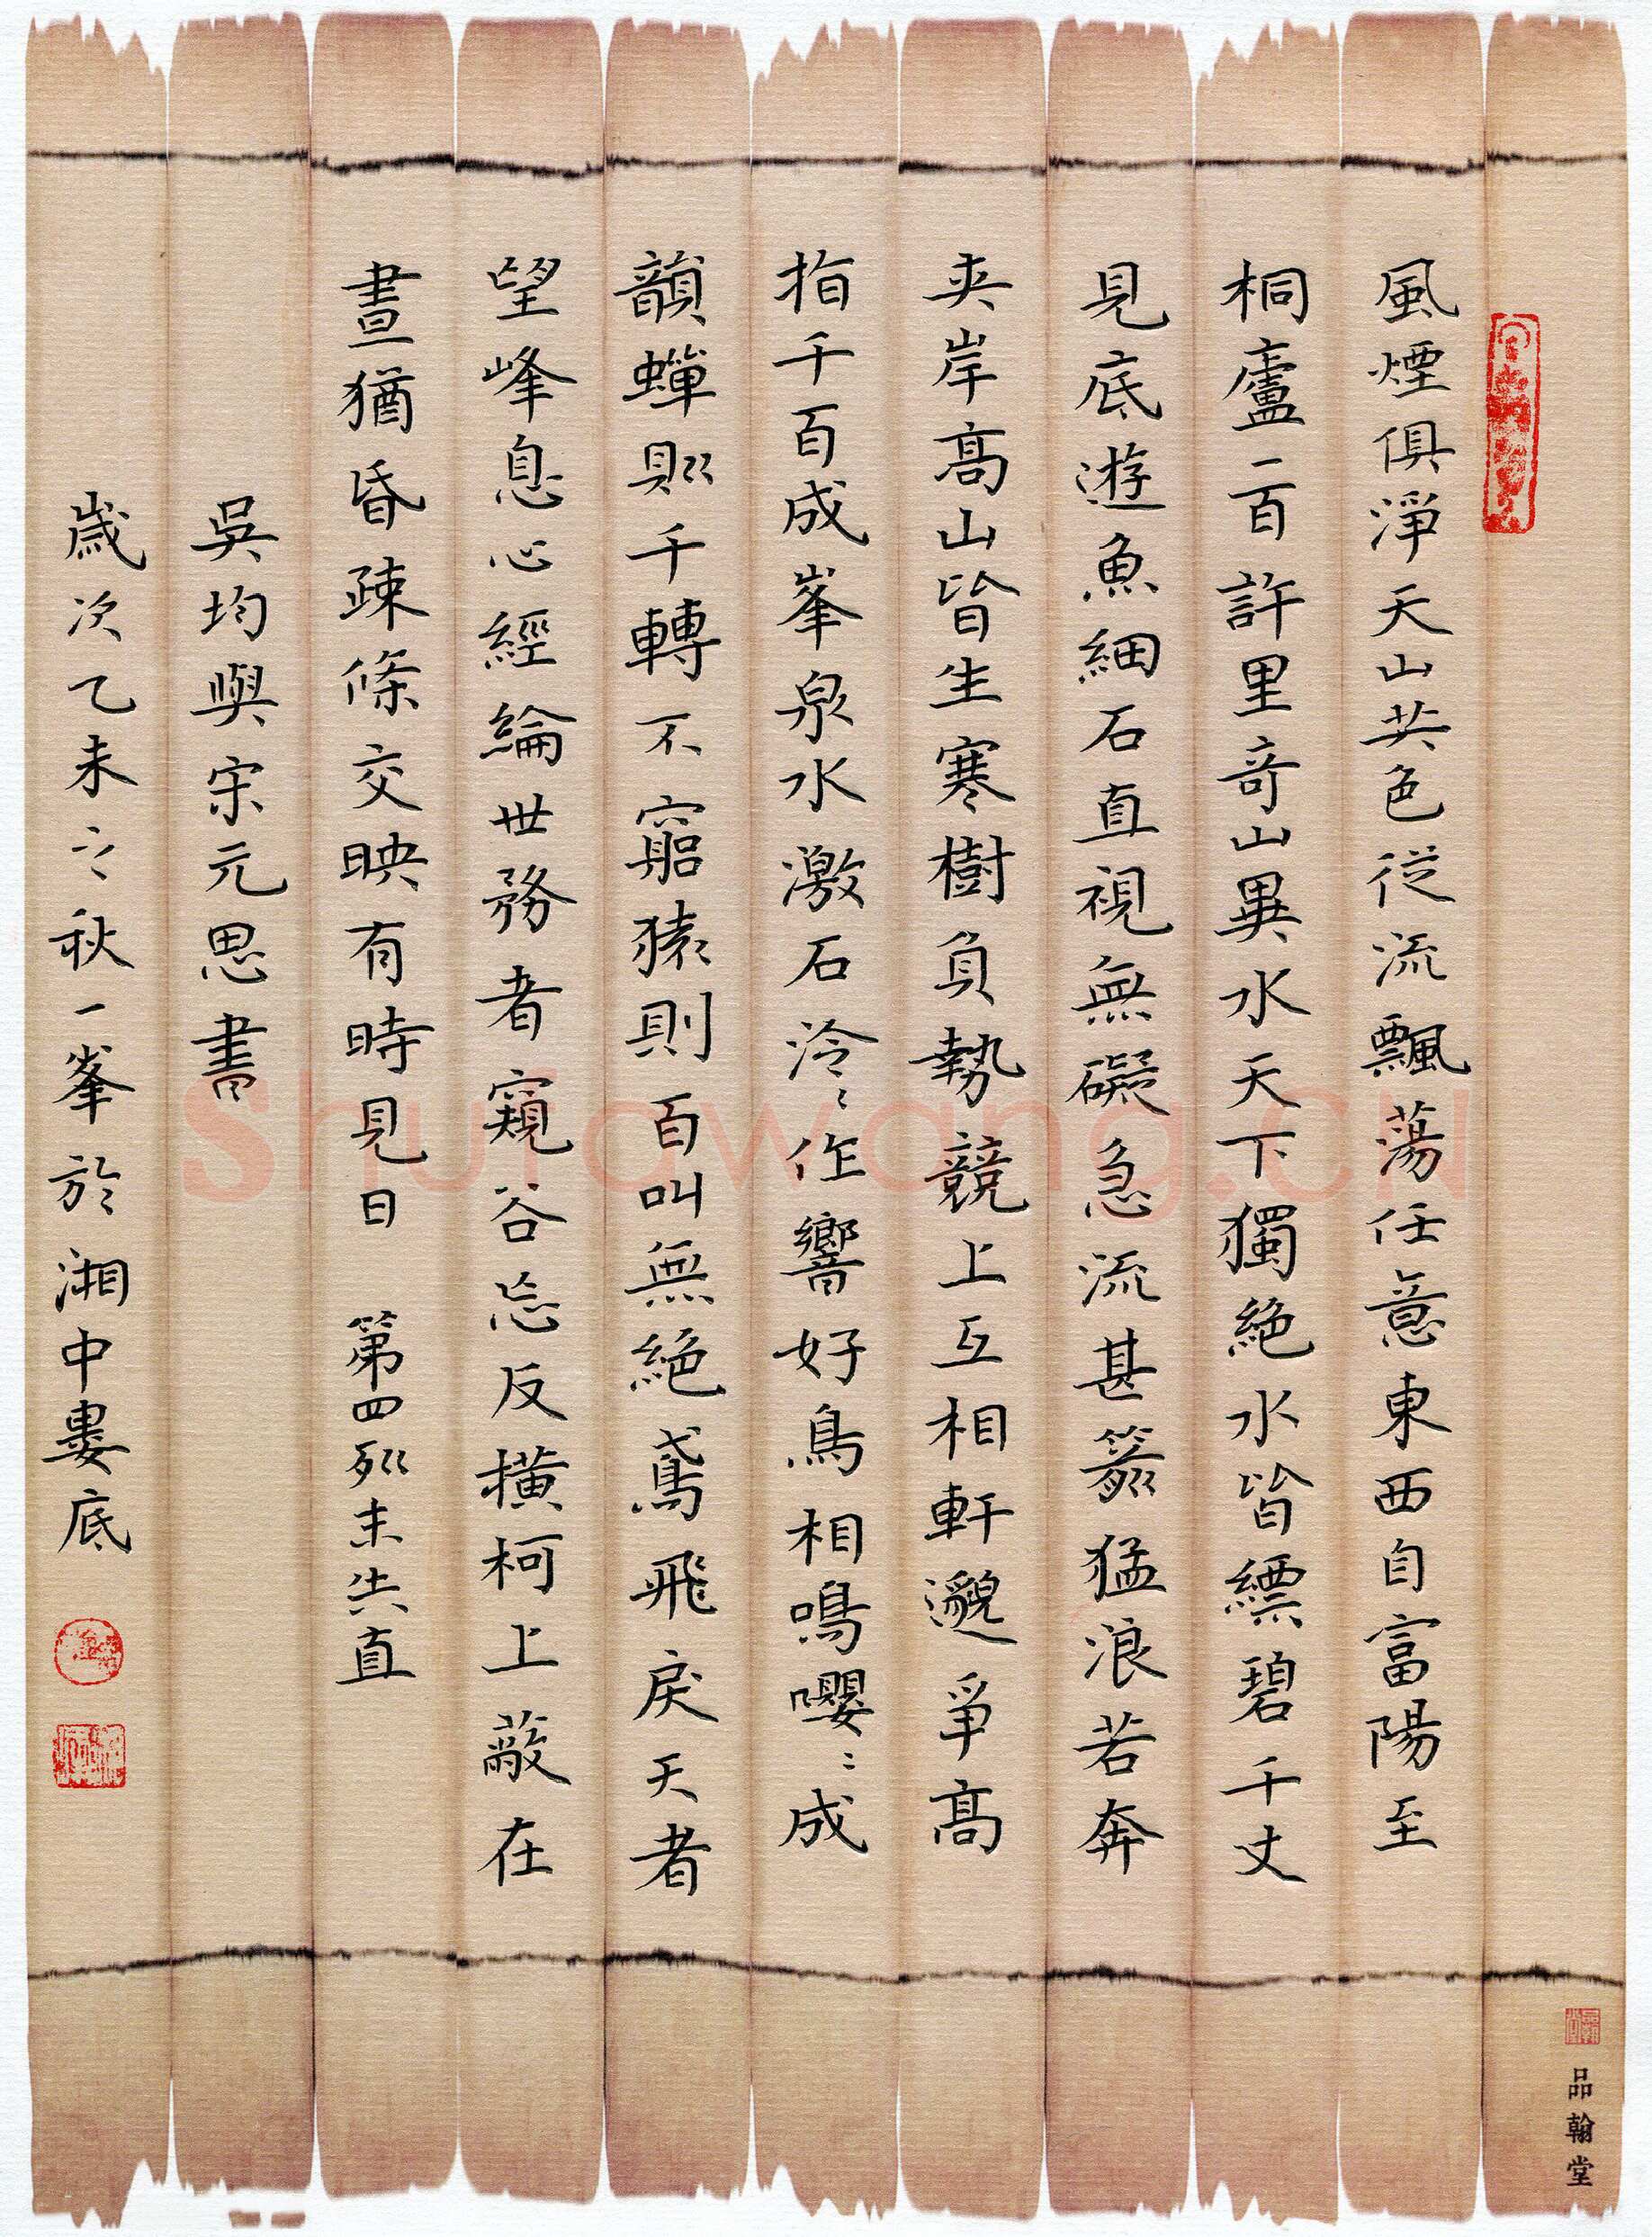 風煙俱淨天山共色從流飄蕩任意東西自富陽至
桐廬一百許里奇山異水天下獨絕水皆縹碧千丈
見底遊魚細石直視無礙急流甚箭猛浪若奔
夾岸高山皆生寒樹負勢競上互相軒邈爭高
指千百成峯泉水激石泠〻作響好鳥相鳴嚶〻成
韻蟬則千轉不窮猿則百叫無絕鳶飛戾天者
望峰息心經綸世務者窺谷忘反橫柯上蔽在
晝猶昏疎條交映有時見日 第四列末失直
吳均與宋元思書
歲次乙未之秋一峯於湘中婁底
品翰堂
Shufawang.cn